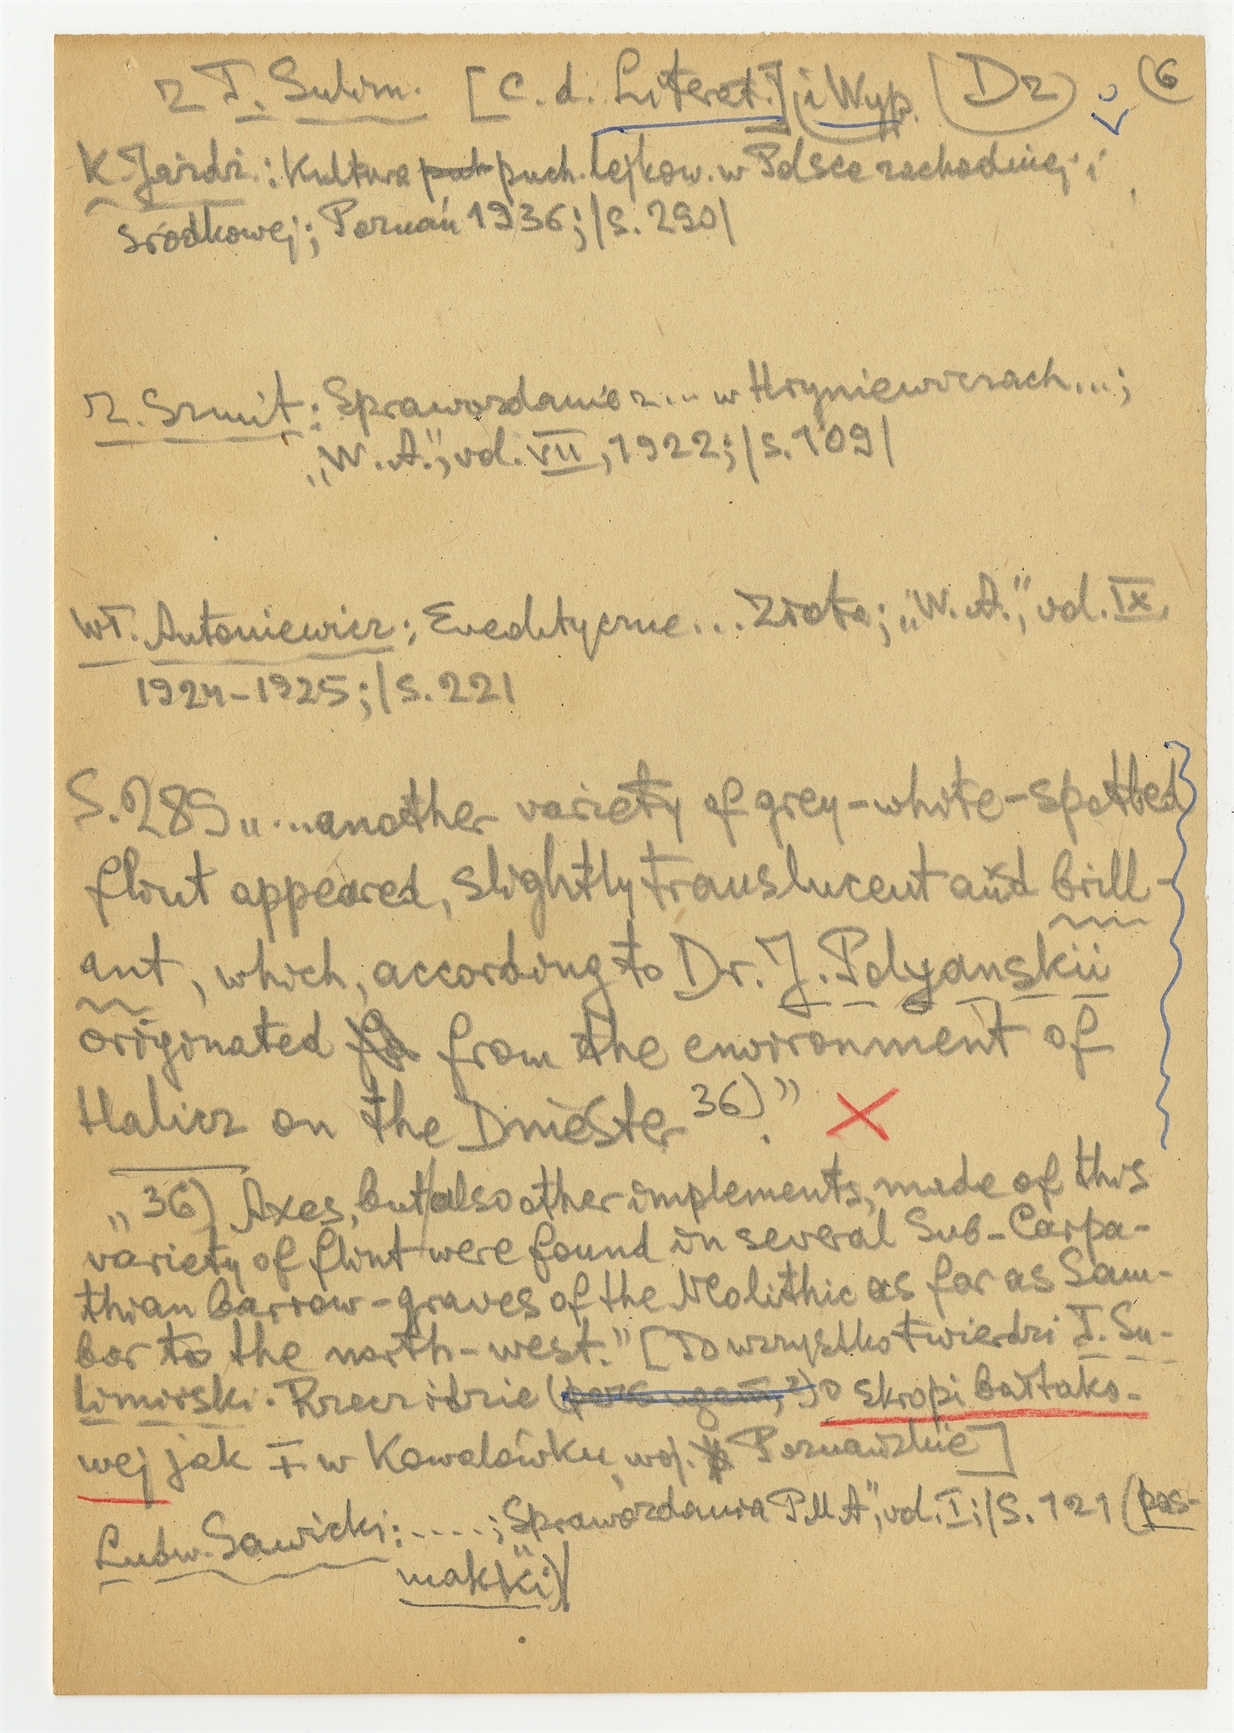 z T. Sulim. [c. d. Literat.] i Wyp. (Dz) (6
K. Jażdż.: Kultura puch. lejkow. w Polsce zachodniej i
środkowej; Poznań 1936; /s. 290/
Z. Szmit: Sprawozdanie z... w Hryniewiczach...;
„W. A.", vol. VII, 1922; /s. 109/
Wł. Antoniewicz: Eneolityczne... Złota; „W. A.", vol. IX,
1924-1925; /s. 22/
S. 289 „...another variety of grey-white-spotted
flint appeared, slightly translucent and brill-
ant, which, according to Dr. J. Polyanskii
originated from the environment of
Halicz on the Dniester 36)".
„36) Axes, but also other implements, made of this
variety of flint were found in several Sub-Carpa-
thian barrow-graves of the Neolithic as far as Sam-
bor to the north-west." [To wszystko twierdzi T. Su-
limirski. Rzecz idzie o skropi bałtako-
wej jak + w Kowalówku, woj. Poznańskie]
Ludw. Sawicki: .....; „Sprawozdania P.M.A", vol. I; /S. 121 (pas-
makki)/